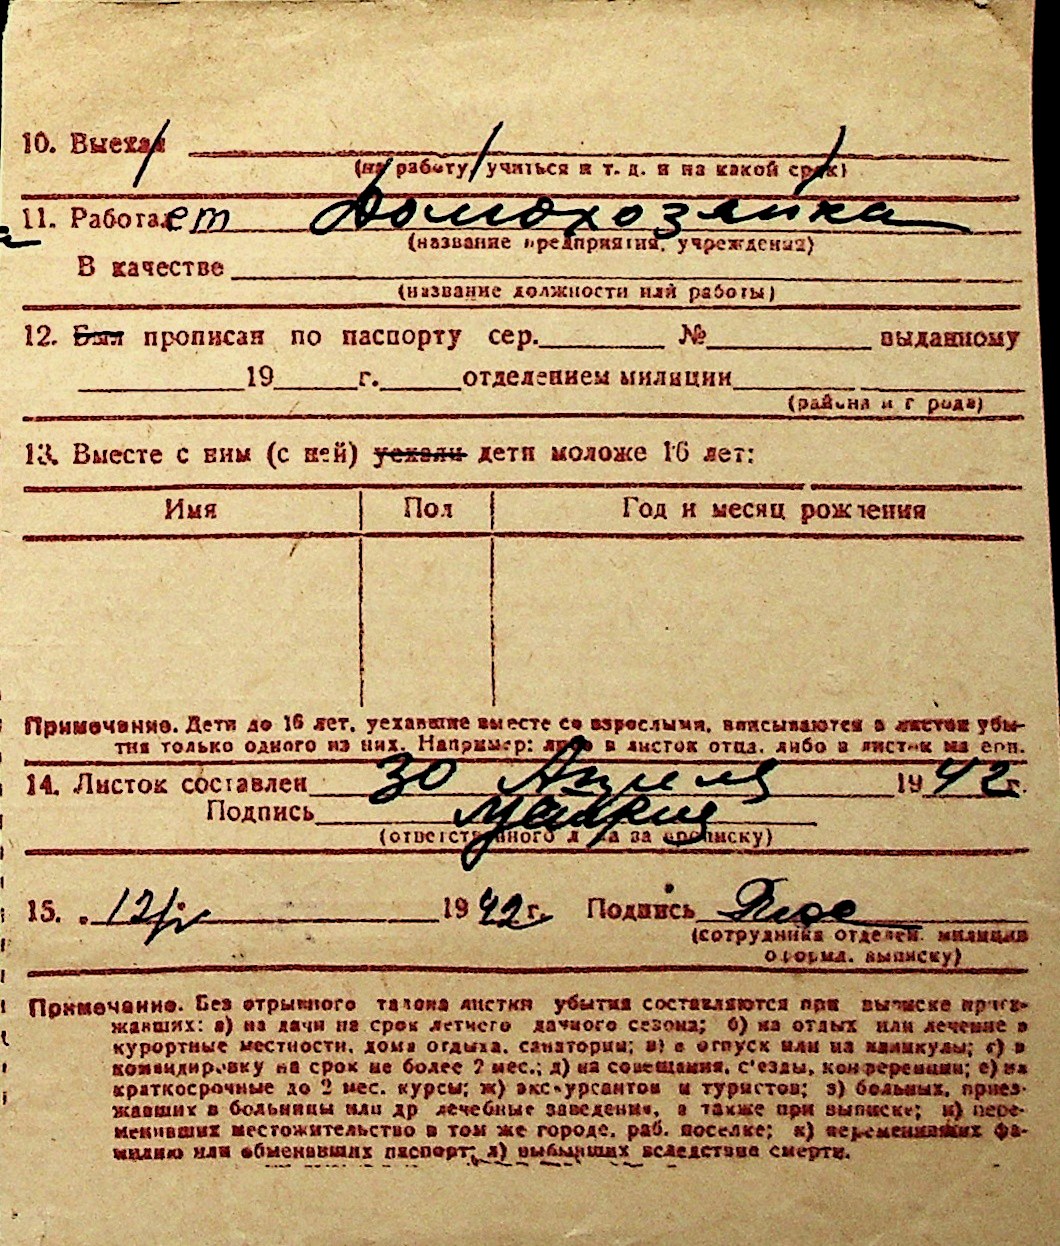 10. Выехал
(на работу, учиться и т. д. и на какой срок)
11. Работает Домохозяйка
(название предприятия, учреждения)
В качестве
(название должности или работы)
12. Был прописан по паспорту сер. № выданному
19 г. отделением милиции
(района и города)
13. Вместе с ним (с ней) уехали дети моложе 16 лет:
Имя Пол Год и месяц рождения
Примечание. Дети до 16 лет, уехавшие вместе со взрослыми, вписываются в листок убы-
тия только одного из них. Например: либо в листок отца, либо в листок матери.
14. Листок составлен 30 Апреля 1942 г.
Подпись
(ответственного лица за прописку)
15. 1942 г. Подпись
(сотрудника отделен. милиции
оформл. выписку)
Примечание. Без отрывного талона листки убытия составляются при выписке приез-
жавших: а) на дачи на срок летнего дачного сезона; б) на отдых или лечение в
курортные местности, дома отдыха, санатории; в) в отпуск или на каникулы; г) в
командировку на срок не более 2 мес.; д) на совещания, с'езды, конференции; е) на
краткосрочные до 2 мес. курсы; ж) экскурсантов и туристов; з) больных, приез-
жавших в больницы или др лечебные заведения, а также при выписке; и) пере-
менивших местожительство в том же городе, раб. поселке; к) переменивших фа-
милию или обменавших паспорт; л) выбывших вследствие смерти.